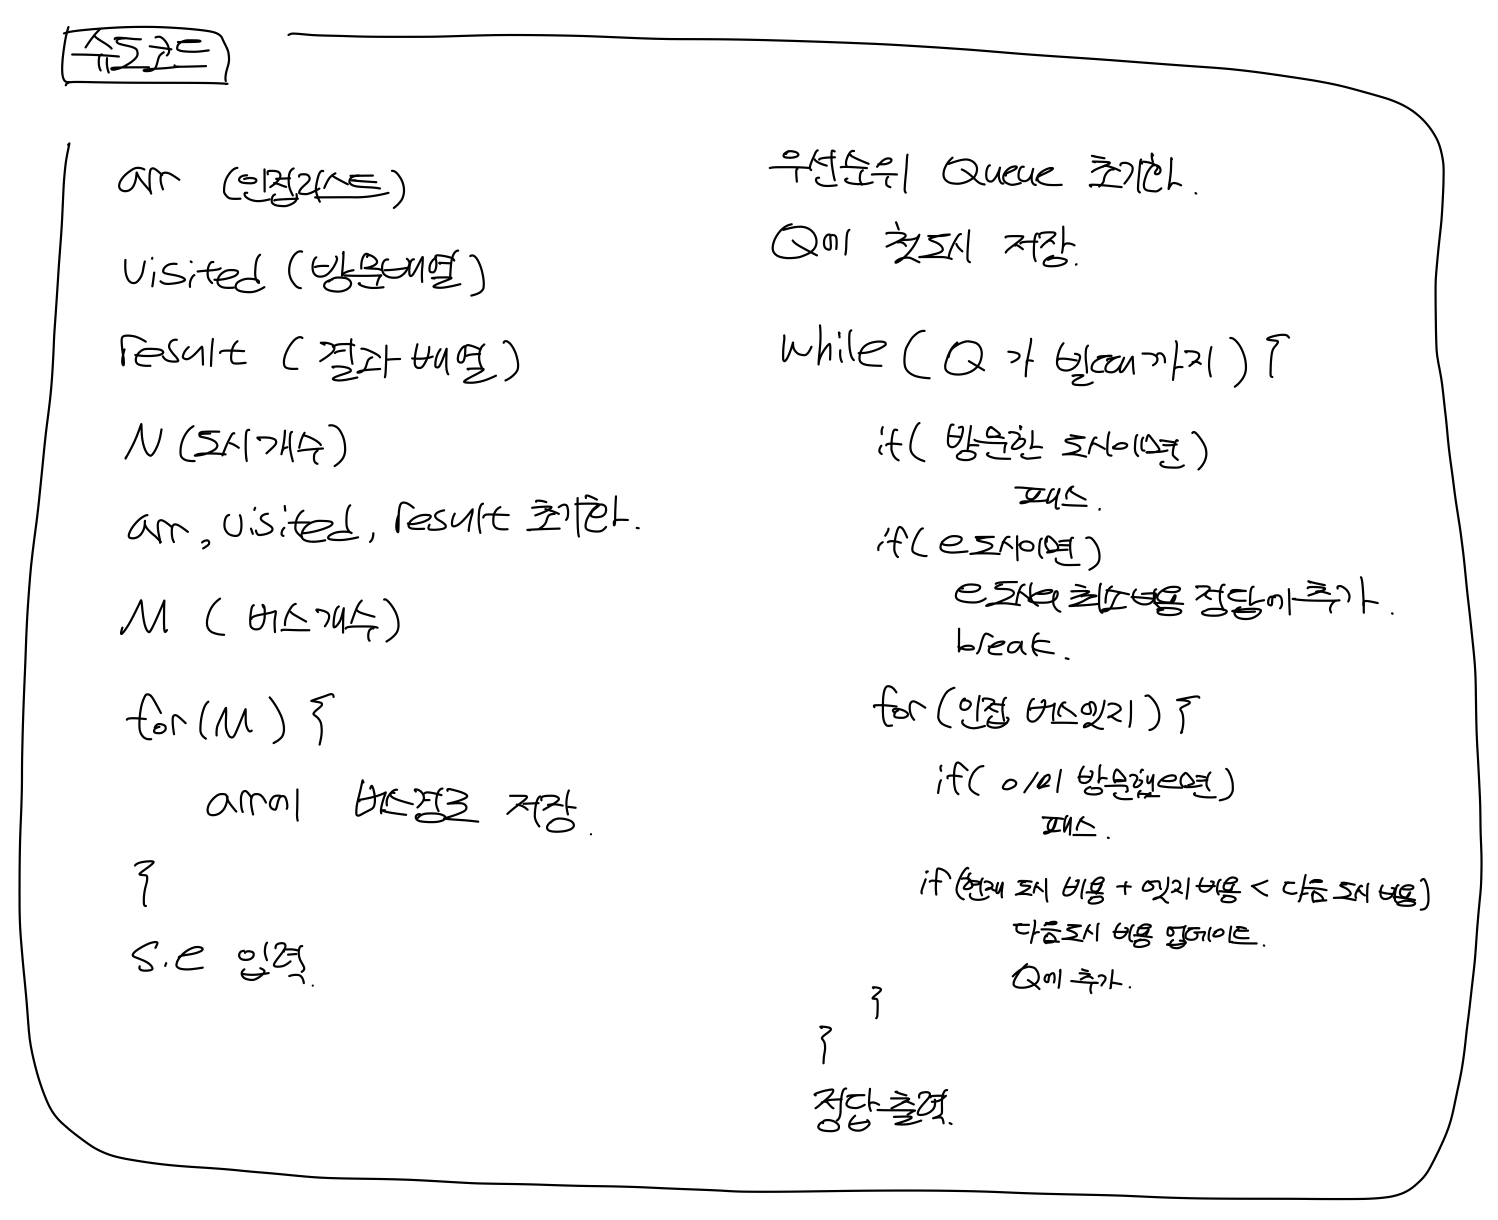 슈도코드
arr (인접리스트)
visited (방문배열)
result (결과 배열)
N (도시개수)
arr, visited, result 초기화.
M ( 버스개수)
for(M) {
arr에 버스경로 저장.
}
s.e 입력.
우선순위 Queue 초기화.
Q에 첫도시 저장.
while ( Q 가 빌때까지 ) {
if( 방문한 도시이면 )
패스.
if( e도시이면 )
e 도시의 최소비용 정답에 추가.
break.
for (인접 버스엣지) {
if( 이미 방문했으면)
패스.
if(현재 도시 비용 + 엣지 비용 < 다음 도시 비용)
다음도시 비용 업데이트.
Q에 추가.
}
}
정답출력.